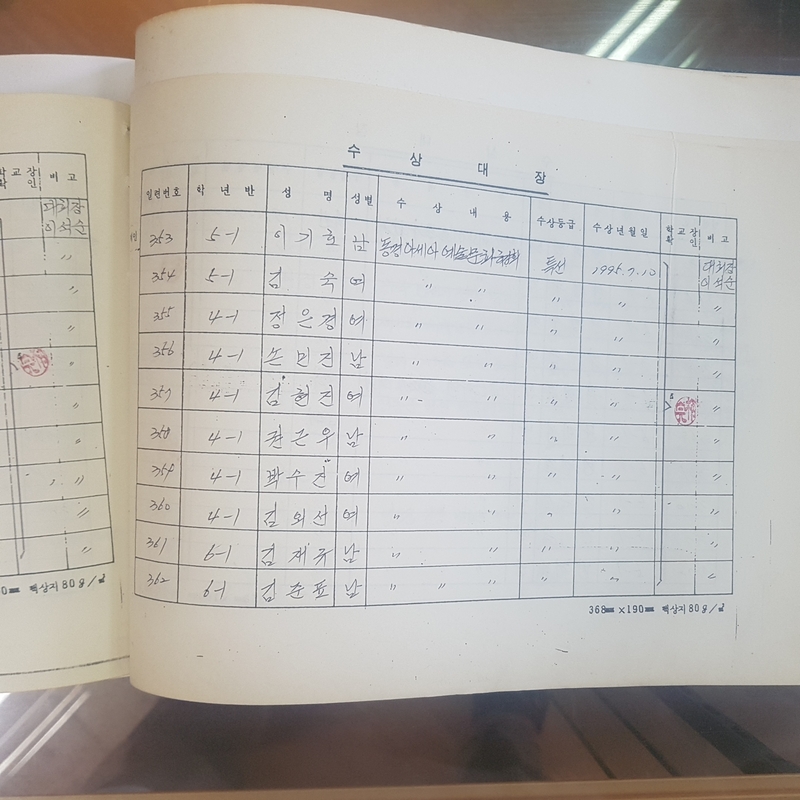 학교장
확인
비고
대회장
이석순
〃
〃
〃
〃
〃
〃
〃
〃
〃
백상지 80g/㎡
수상대장
일련번호 학년반 성명 성별 수상내용 수상등급 수상년월일 학교장확인 비고
353 5-1 이기호 남 동경아세아예술문화협회 특선 1995.7.10 대회장 이석순
354 5-1 김숙 여 〃 〃 〃 〃 〃
355 4-1 정은경 여 〃 〃 〃 〃 〃
356 4-1 손민진 남 〃 〃 〃 〃 〃
357 4-1 김현진 여 〃 〃 〃 〃 〃
358 4-1 권근우 남 〃 〃 〃 〃 〃
359 4-1 박수진 여 〃 〃 〃 〃 〃
360 4-1 김외선 여 〃 〃 〃 〃 〃
361 6-1 김재규 남 〃 〃 〃 〃 〃
362 6-1 김준표 남 〃 〃 〃 〃 〃 〃
368㎜×190㎜ 백상지 80g/㎡